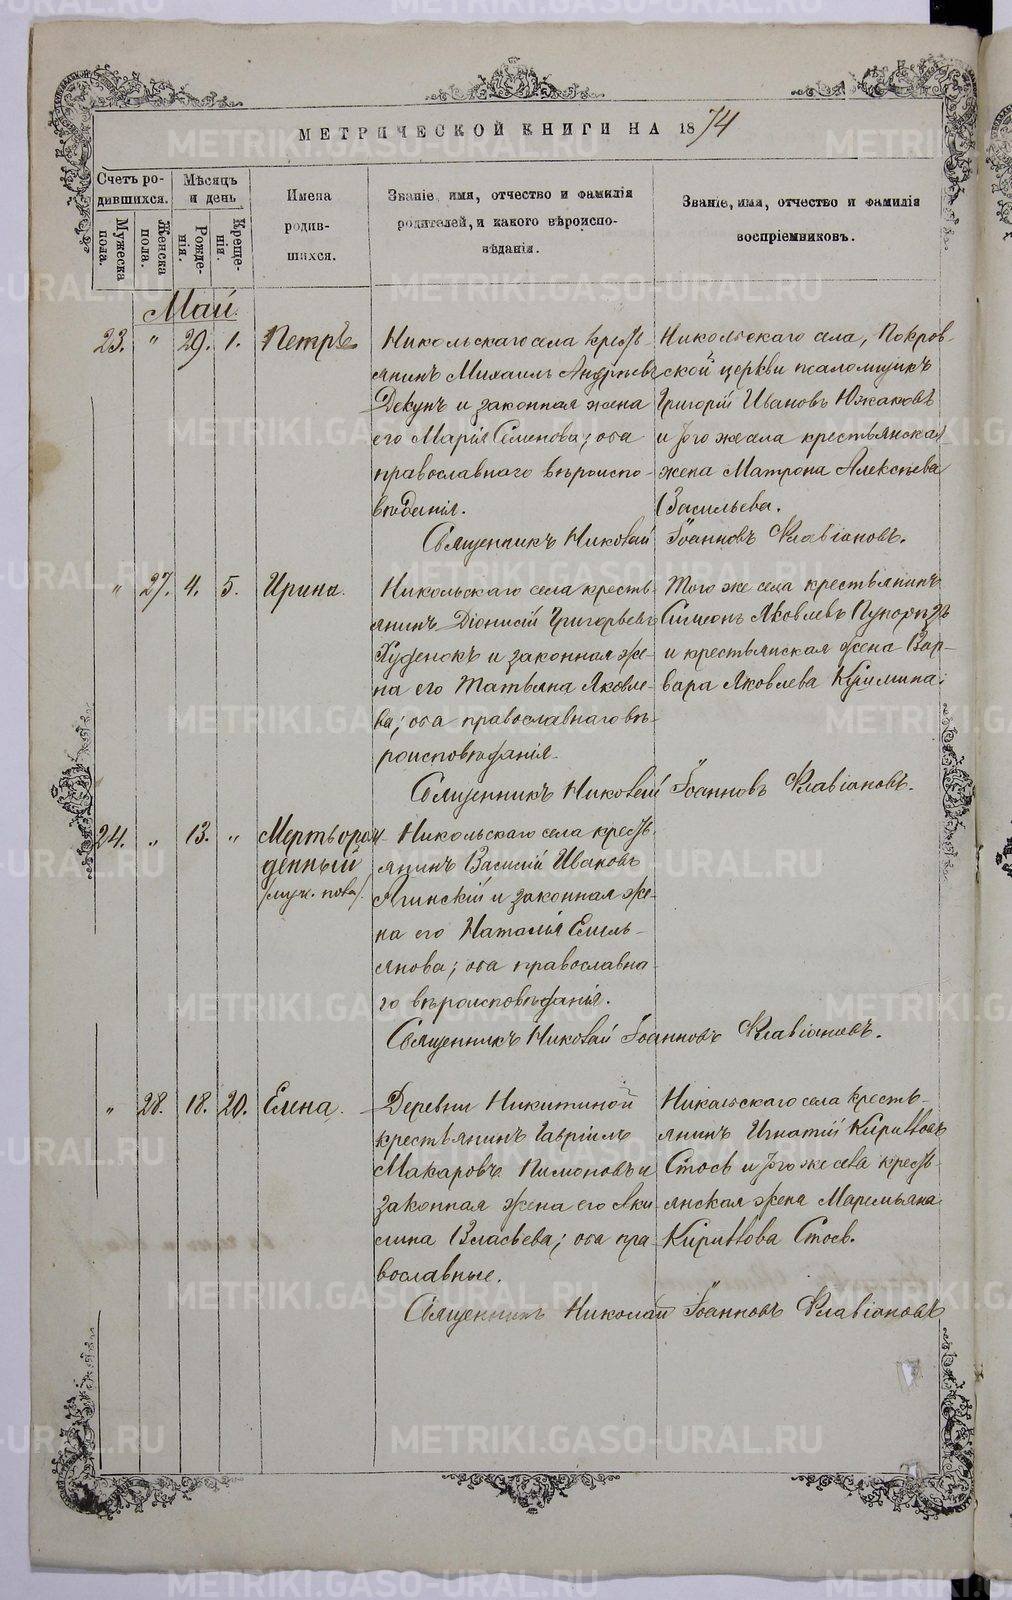 МЕТРИЧЕСКОЙ КНИГИ НА 1874
Счетъ ро-
дившихся.
Мужеска
пола.
Женска
пола.
Мѣсяцъ
и день
Рожде-
нія.
Креще-
нія.
Имена
родив-
шихся.
Званіе, имя, отчество и фамилія
родителей, и какого вѣроиспо-
вѣданія.
Званіе, имя, отчество и фамилія
воспріемниковъ.
Май.
23. " 29. 1. Петръ
Никольскаго села кресть-
янинъ Михаилъ Андреевъ
Декунъ и законная жена
его Марія Семенова; оба
православнаго вѣроиспо-
вѣданія.
Никольскаго села, Покров-
ской церкви псаломщикъ
Григорій Ивановъ Южаковъ
и того же села крестьянская
жена Матрона Алексѣева
Васильева.
Священникъ Николай Іоанновъ Флавіановъ.
" 27. 4. 5. Ирина.
Никольскаго села кресть-
янинъ Діонисій Григорьевъ
Худенокъ и законная же-
на его Татьяна Яковле-
ва; оба православнаго вѣ-
роисповѣданія.
Того же села крестьянинъ
Симеонъ Яковлевъ
и крестьянская жена Вар-
вара Яковлева
Священникъ Николай Іоанновъ Флавіановъ.
24. " 13. " Мертворож-
денный
Никольскаго села кресть-
янинъ Василій Ивановъ
Ягинскій и законная же-
на его Наталія Емель-
янова; оба православна-
го вѣроисповѣданія.
Священникъ Николай Іоанновъ Флавіановъ.
" 28. 18. 20. Елена.
Деревни Никитиной
крестьянинъ Гавріилъ
Макаровъ Пимоновъ и
законная жена его Аки-
лина Власьева; оба пра-
вославные.
Никольскаго села кресть-
янинъ Игнатій Кирилловъ
Стосъ и того же села кресть-
янская жена Маремьяна
Кириллова Стосъ.
Священникъ Николай Іоанновъ Флавіановъ
METRIKI.GASO-URAL.RU